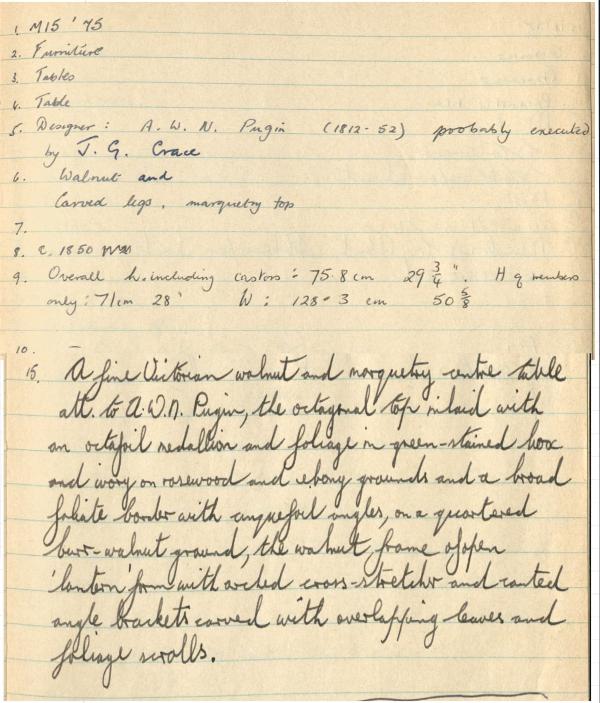 1. M15 '75
2. Furniture
3. Tables
4. Table
5. Designer: A. W. N. Pugin (1812-52) probably executed
by J. G. Crace
6. Walnut and
Carved legs, marquetry top
7.
8. c. 1850
9. Overall h. including castors: 75.8 cm 29 3/4". H of members
only: 71cm 28" W: 128.3 cm 50 5/8
10. –
15. A fine Victorian walnut and marquetry centre table
att. to A.W.N. Pugin, the octagonal top inlaid with
an octafoil medallion and foliage in green-stained box
and ivory on rosewood and ebony grounds and a broad
foliate border with cinquefoil angles, on a quartered
burr-walnut ground, the walnut frame of open
'lantern' form with arched cross-stretcher and canted
angle brackets carved with overlapping leaves and
foliage scrolls.